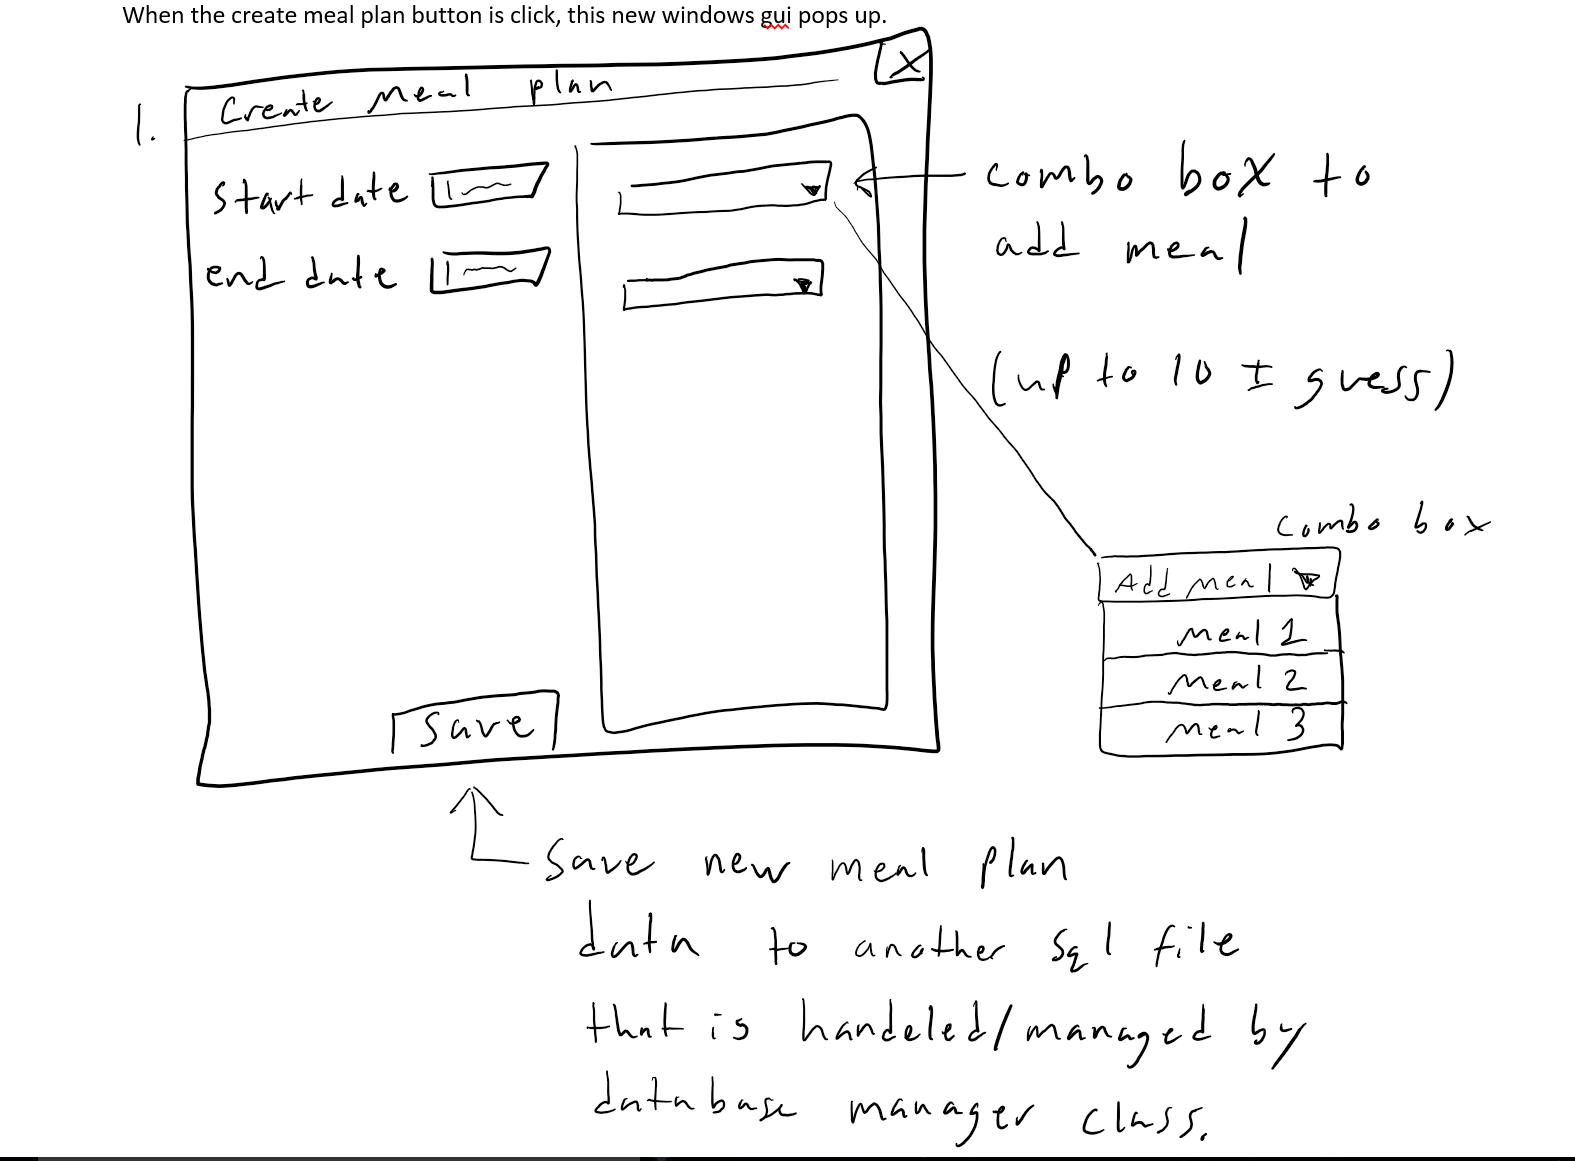 When the create meal plan button is click, this new windows gui pops up.
1.
Create meal plan
X
start date
end date
combo box to
add meal
(up to 10 ± guess)
combo box
Add meal
meal 1
meal 2
meal 3
save
Save new meal plan
data to another sql file
that is handeled/managed by
database manager class.